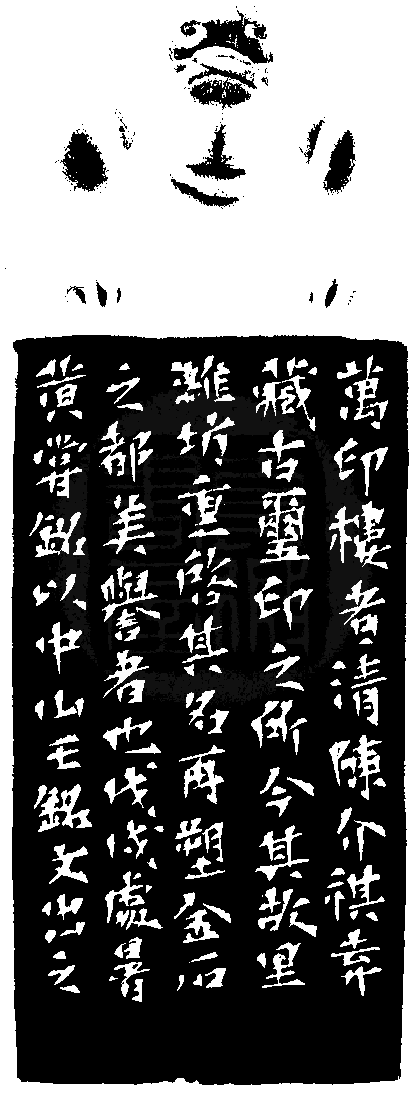 萬印樓者清陳介祺弆
藏古璽印之所今其故里
濰坊重啓其名再塑金石
之都美譽者也戊戌處暑
黄嘗銘以中山王銘文出之